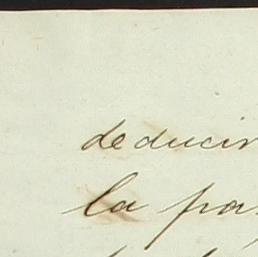 deducir
la pa